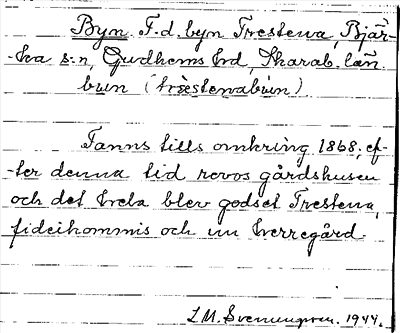 Byn. F.d. byn Trestena, Bjär-
-ka s:n, Gudhems hd, Skarab. län
bun (trèstenabùn)
Fanns tills omkring 1868; ef-
-ter denna tid revos gårdshusen
och det hela blev godset Trestena,
fideikommis och nu herregård.
L.M. Svenungsson. 1944.